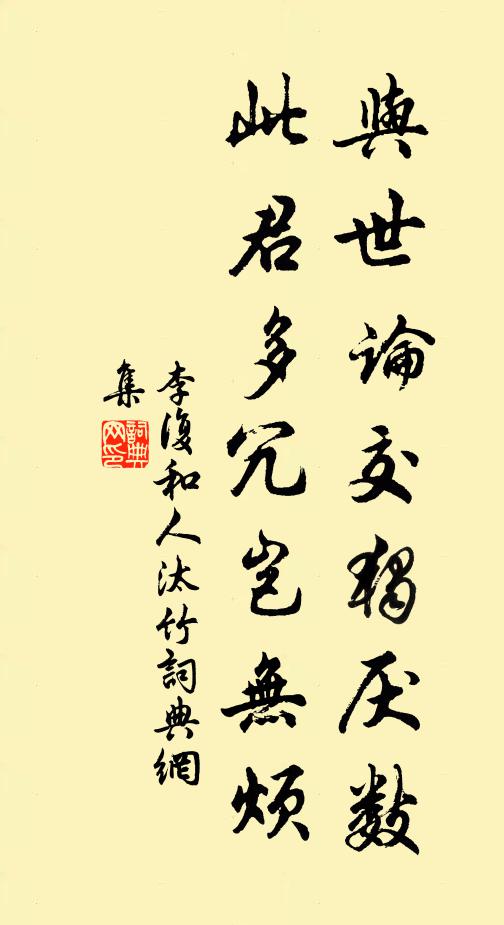 與世論交獨厭數
此君多冗豈無煩
李復和人汰竹詞典網
集
詞典網印